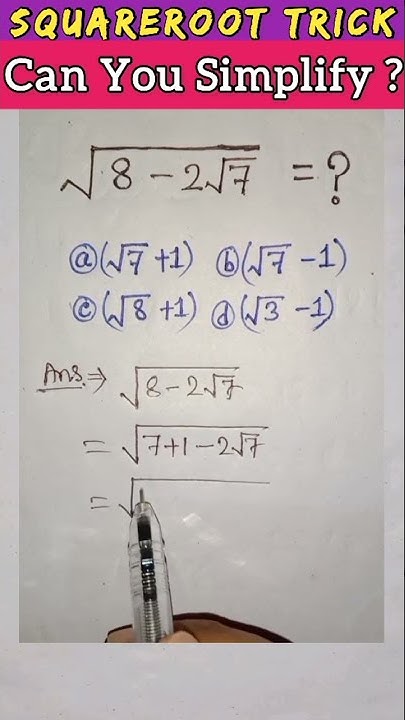 SQUAREROOT TRICK
Can You Simplify ?
√8 - 2√7 = ?
ⓐ(√7 +1) ⓑ(√7 -1)
ⓒ(√8 +1) ⓓ(√3 -1)
Ans. ⇒ √8-2√7
= √7+1-2√7
= √